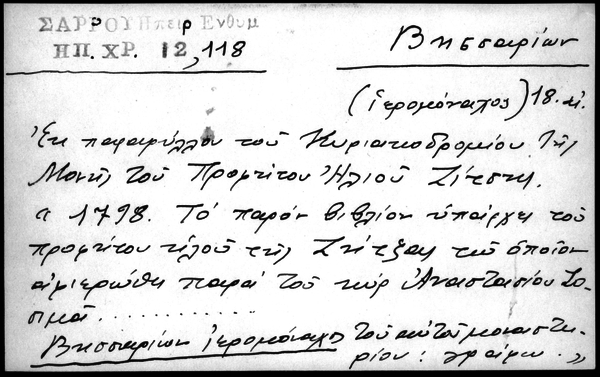 ΣΑΡΡΟΥ Ηπειρ Ενθυμ
ΗΠ. ΧΡ. 12, 118
Βησσαρίων
(Ἱερομόναχος) 18. αἰ.
Ἐκ παραφύλλου τοῦ Κυριακοδρομίου τῆς
Μονῆς τοῦ Προφήτου Ἠλιοῦ Ζίτσης.
α 1798. Τό παρόν βιβλίον ὑπάρχει τοῦ
προφήτου ηλοῦ τῆς Ζήτζας τό ὁποῖον
αφιερώθη παρά τοῦ κύρ Ἀναστασίου Σο-
σιμᾶ..............
Βησσαρίων ἱερομόναχος τοῦ αὐτοῦ μοναστη-
ρίου: γράφω. "